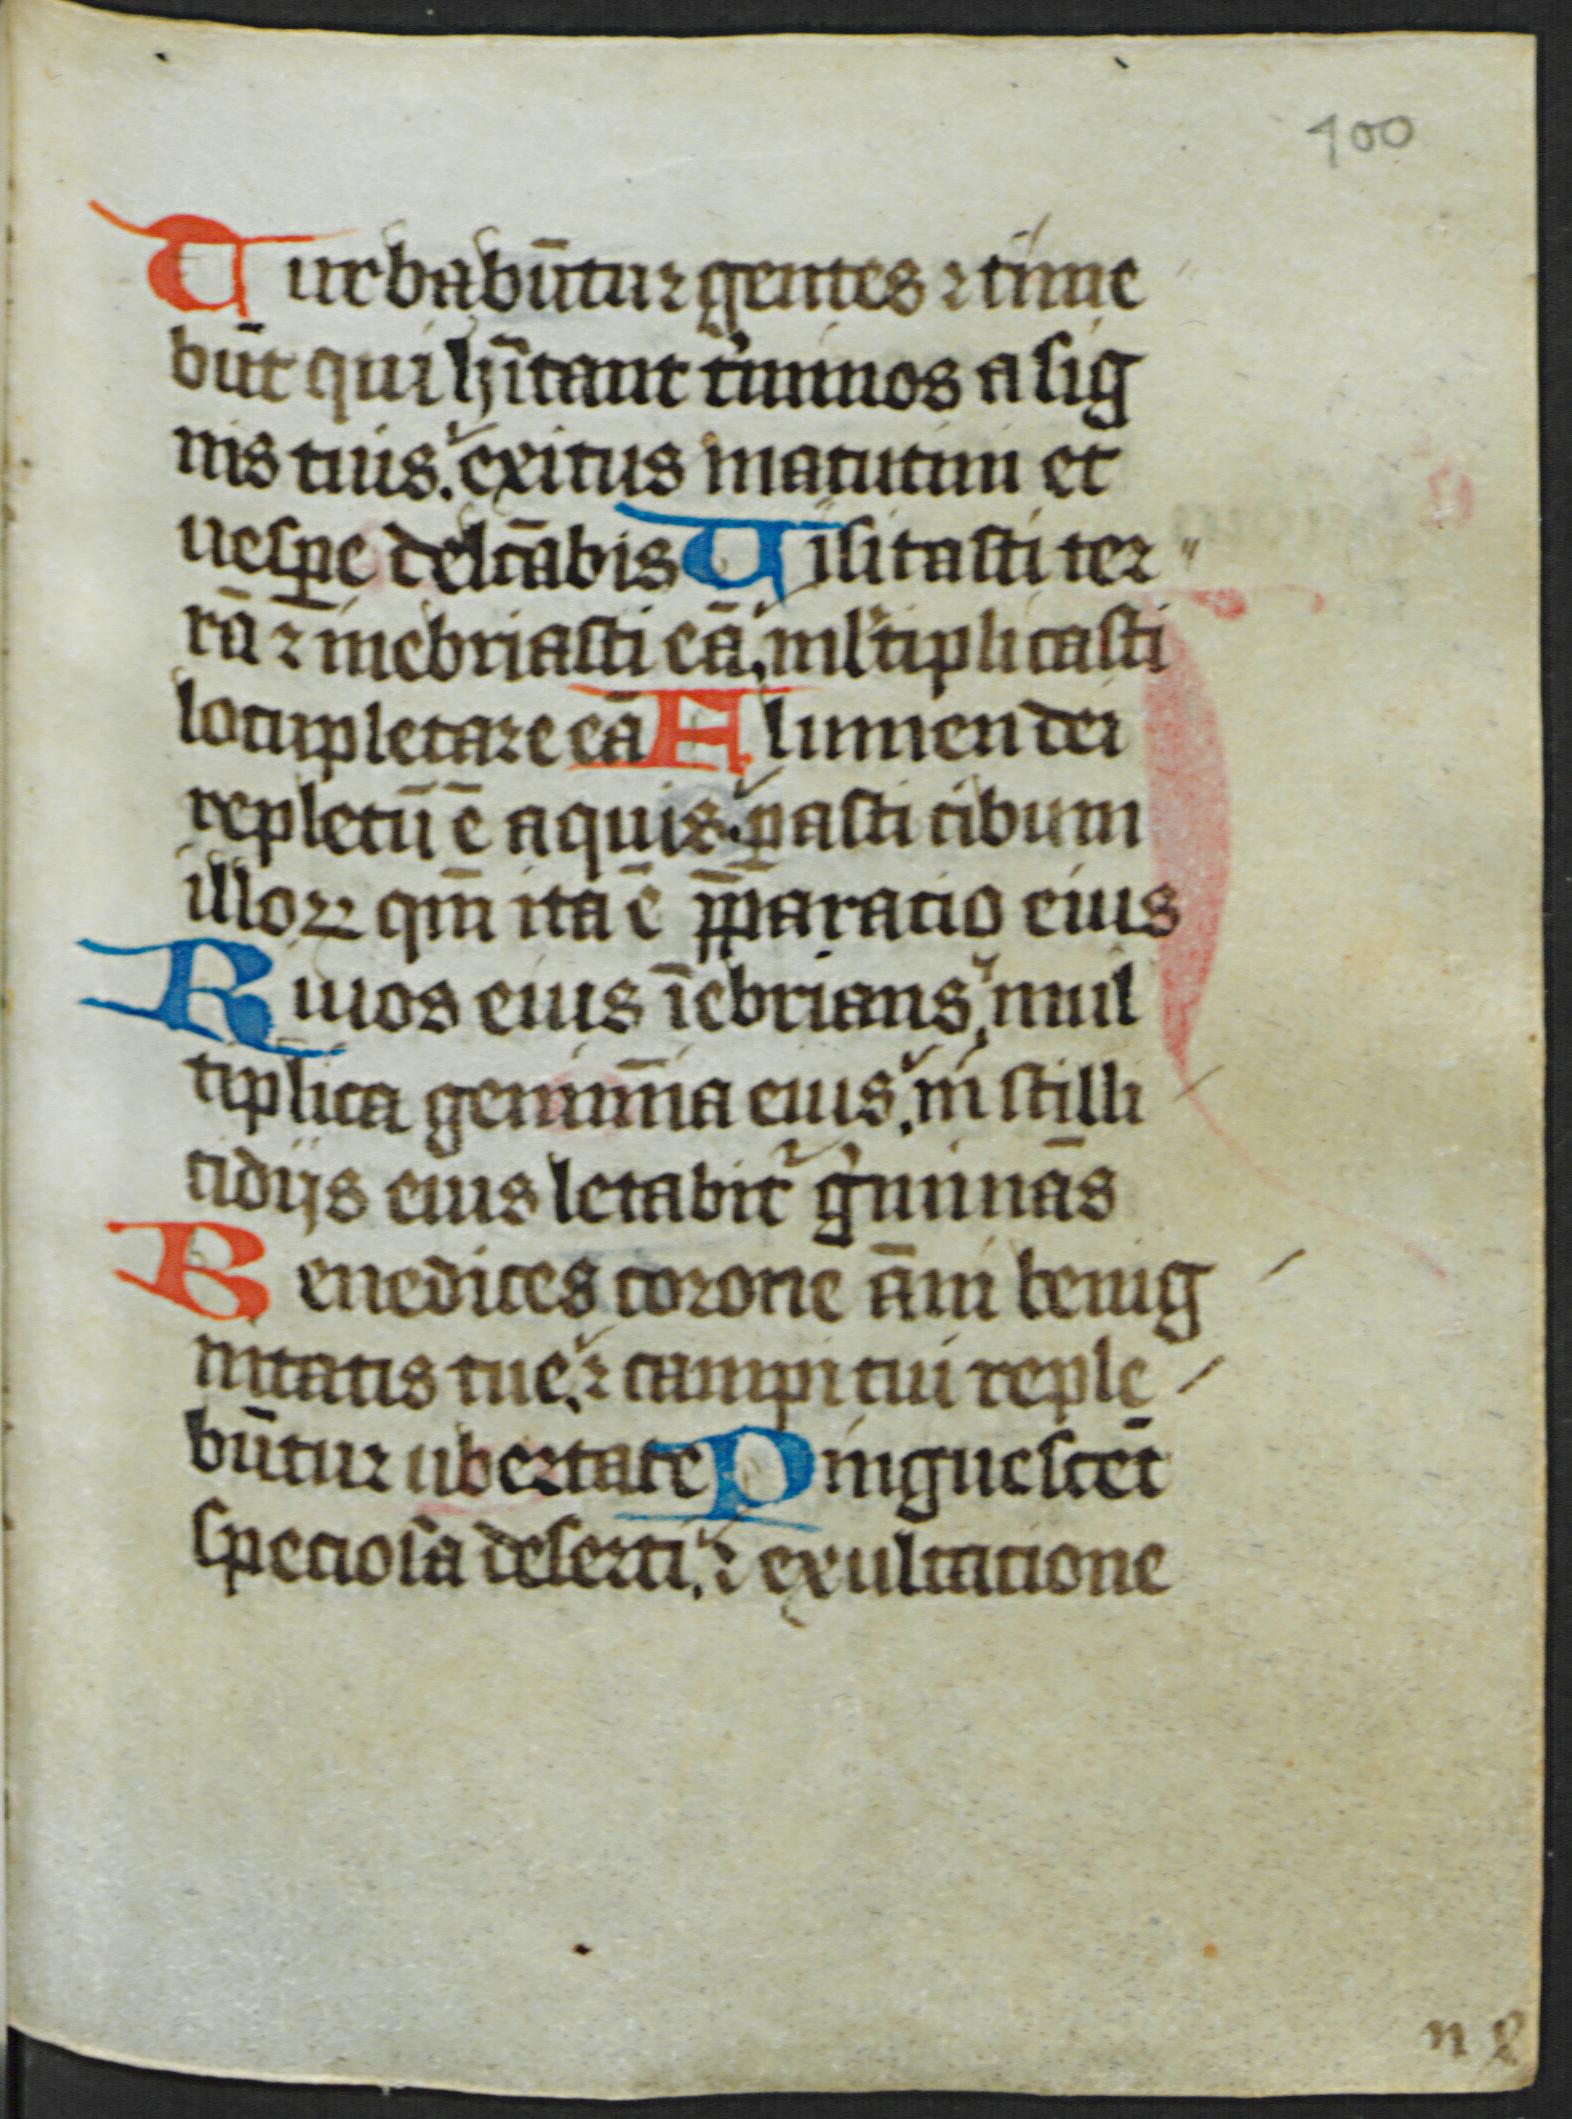 100
Turbabūtur gentes ⁊ time
būt qui hı̄tant t'minos a sig
nis tuis. exitus matutini et
uesꝑe delc̄abis Uisitasti ter
rā ⁊ inebriasti eā. ml'tiplicasti
locupletare eā Flumen dei
repletū ē aquis. parasti cibum
illoꝝ qm̄ ita ē p̄paratio eius
Riuos eius īebrians. mul
tiplica genim̄ia eius. in stilli
cidijs eius letabit᷑ g'minās
Benedices corone āni benig
nitatis tue. ⁊ campi tui reple
būtur ubertate Pinguescēt
speciosa deserti. ⁊ exultatione